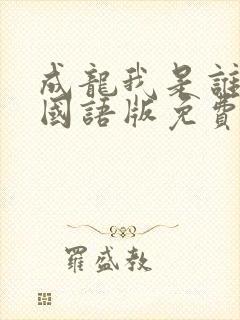 成龍我是誰
國語版免費
羅盛教